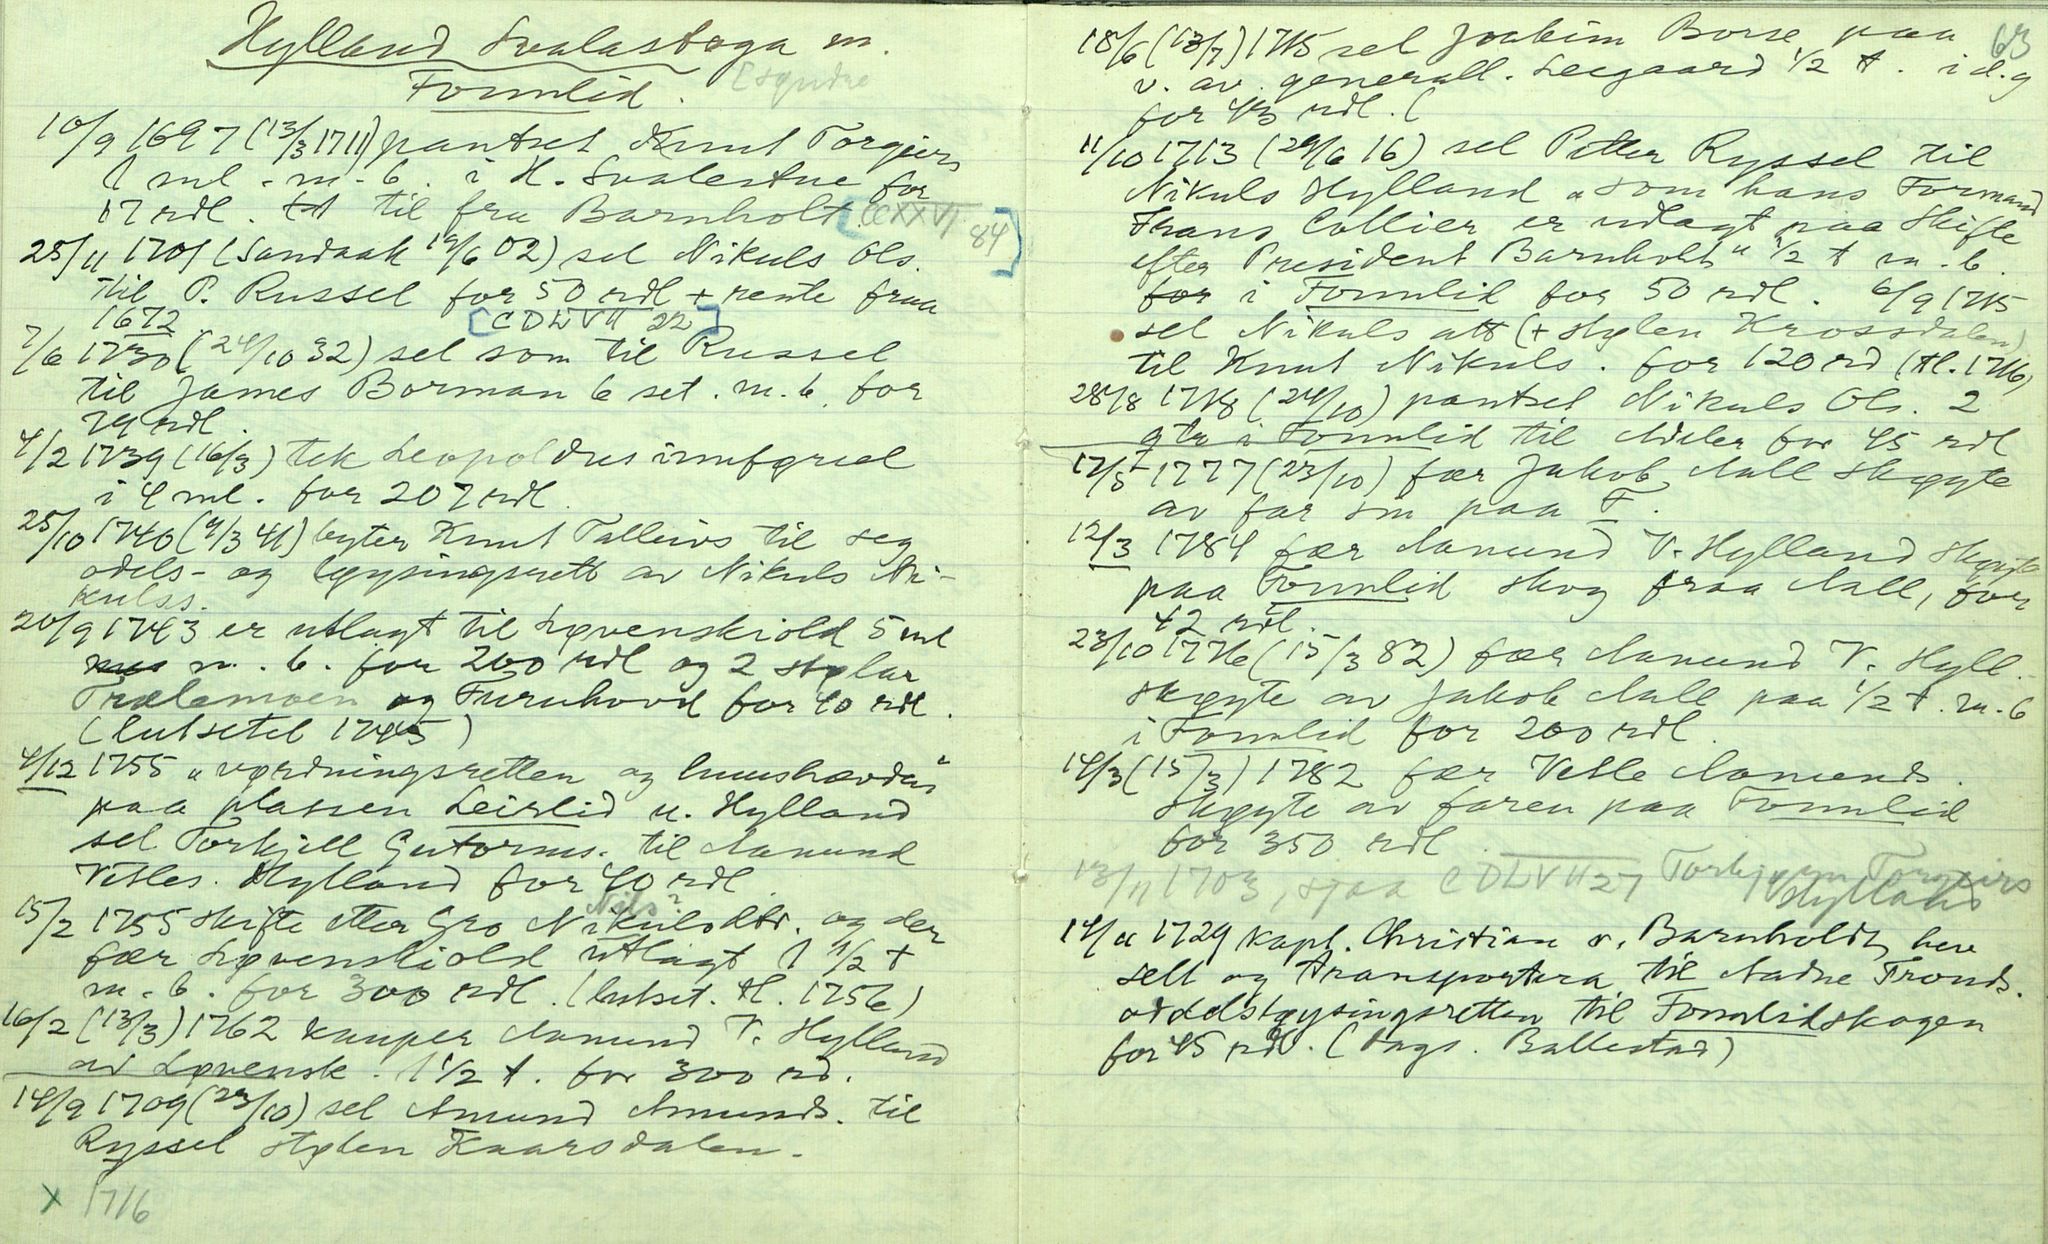 Hylland Svalastoga m.
Fonnlid.
10/9 1697 (13/3 1711) pantset Knut Torgeirs
1 ml. m. b. i H. Svalestue for
17 rdl. til fru Barnholt. [CCXXVI 84]
25/11 1701 (Sandaak 19/6 02) sel Nikuls Ols.
til P. Russel for 50 rdl + rente fraa
1672 [CDLVII 22]
7/6 1730 (24/10 32) sel som til Russel
til James Borman 6 set. m. b. for
79 rdl.
4/2 1739 (16/3) tek Leopoldus innførsel
i 4 ml. for 207 rdl.
25/10 1740 (9/3 41) byter Knut Talleivs til seg
odels- og løysingsrett av Nikuls Ni-
kulss.
20/9 1743 er utlagt til Løvenskiold 5 ml
m. b. for 200 rdl og 2 stølar
Trælemoen og Furuhovd for 40 rdl.
(lutsetel 1745)
4/12 1755 "vørdningsretten og huushævden"
paa plassen Leirlid u. Hylland
sel Torkjell Gutorms. til Aamund
Vetles. Hylland for 40 rdl.
Nils?
15/2 1755 skifte etter Gro Nikulsdtr. og der
fær Løvenskiold utlagt 1 1/2 t
m. b. for 300 rdl. (lutset. tl. 1756)
16/2 (13/3) 1762 kauper Aamund V. Hylland
av Løvensk. 1 1/2 t. for 300 rd.
14/9 1709 (23/10) sel Amund Amunds. til
Ryssel stølen Kaarsdalen.
x 1716
63
18/6 (13/7) 1715 sel Joakim Borse paa
v. av generall. Leegaard 1/2 t. i d. g
for 43 rdl. (
11/10 1713 (29/6 16) sel Petter Ryssel til
Nikuls Hylland "som hans Formand
Frans Collier er udlagt paa Skifte
efter President Barnholt" 1/2 t m. b.
for i Fonnlid for 50 rdl. 6/9 1715
sel Nikuls att (+ stølen Krossdalen)
til Knut Nikuls. for 120 rd (tl. 1716)
28/8 1718 (24/10) pantset Nikuls Ols. 2
gtr i Fonnlid til Adeler for 45 rdl
17/5 1777 (23/10) fær Jakob Aall skøyte
av far sin paa F.
12/3 1784 fær Aamund V. Hylland skøyte
paa Fonnlid skog fraa Aall, for
42 rdl.
23/10 1776 (15/3 82) fær Aamund V. Hyll.
skøyte av Jakob Aall paa 1/2 t. m. b
i Fonnlid for 200 rdl.
14/3 (15/3) 1782 fær Vetle Aamunds.
skøyte av faren paa Fonnlid
for 350 rdl.
13/11 1703, sjaa CDLVII 27 Torbjørn Torgeirs
Hylland
14/11 1729 kapt. Christian v. Barnholdt, have
selt og transportera til Aadne Tronds.
oddelsløysingsretten til Fonnlidskogen
for 45 rdl. (Dags. Ballestad)